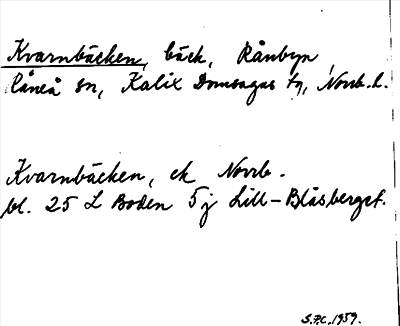 Kvarnbäcken, bäck, Rånbyn,
Råneå sn, Kalix Domsagas tg, Norrb. l.
Kvarnbäcken, ek Norrb.
bl. 25 L Boden 5 j Lill-Blåsberget.
S.P.C. 1959.